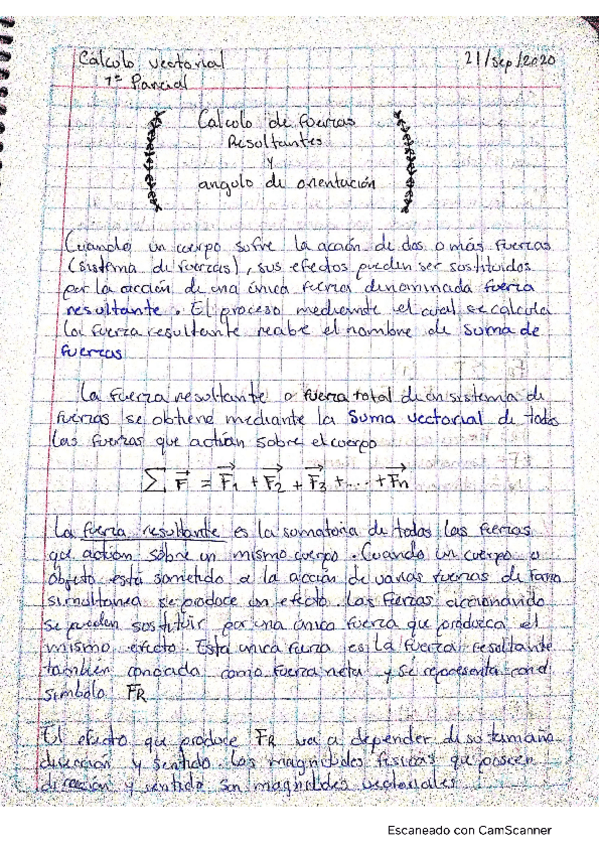 Cálculo vectorial 21/sep/2020
1er Parcial
Calculo de fuerzas
Resultantes
y
angulo de orientación
Cuando un cuerpo sufre la acción de dos o más fuerzas
(sistema de fuerzas), sus efectos pueden ser sustituidos
por la acción de una única fuerza denominada fuerza
resultante. El proceso mediante el cual se calcula
la fuerza resultante recibe el nombre de suma de
fuerzas
La fuerza resultante o fuerza total de un sistema de
fuerzas se obtiene mediante la suma vectorial de todas
las fuerzas que actúan sobre el cuerpo
∑ F⃗ = F⃗1 + F⃗2 + F⃗3 + .... + F⃗n
La fuerza resultante es la sumatoria de todas las fuerzas
que actúan sobre un mismo cuerpo. Cuando un cuerpo u
objeto está sometido a la acción de varias fuerzas de forma
simultanea se produce un efecto. Las fuerzas
se pueden sustituir por una única fuerza que produzca el
mismo efecto. Esta única fuerza es la fuerza resultante
también conocida como fuerza neta y se representa con el
símbolo FR
El efecto que produce FR va a depender de su tamaño
dirección y sentido. Las magnitudes físicas que poseen
dirección y sentido son magnitudes vectoriales.
Escaneado con CamScanner